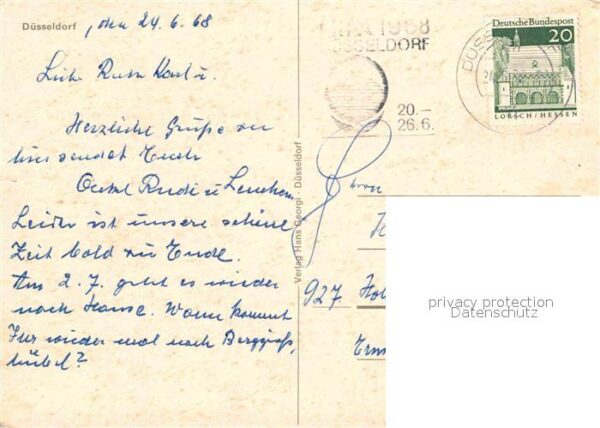 Düsseldorf , den 24.6.68
Liebe Ruth Karl u.
Herzliche Grüße von
hier sendet Euch
Onkel Rudi u Lenchen
Leider ist unsere schöne
Zeit bald zu Ende.
Am 2.7. geht es wieder
nach Hause. Wann kommt
Ihr wieder mal nach Berggieß-
hübel?
Verlag Hans Georgi · Düsseldorf
1968
DÜSSELDORF
20.–
26.6.
DÜSS
Deutsche Bundespost
20
LORSCH/HESSEN
927
privacy protection
Datenschutz